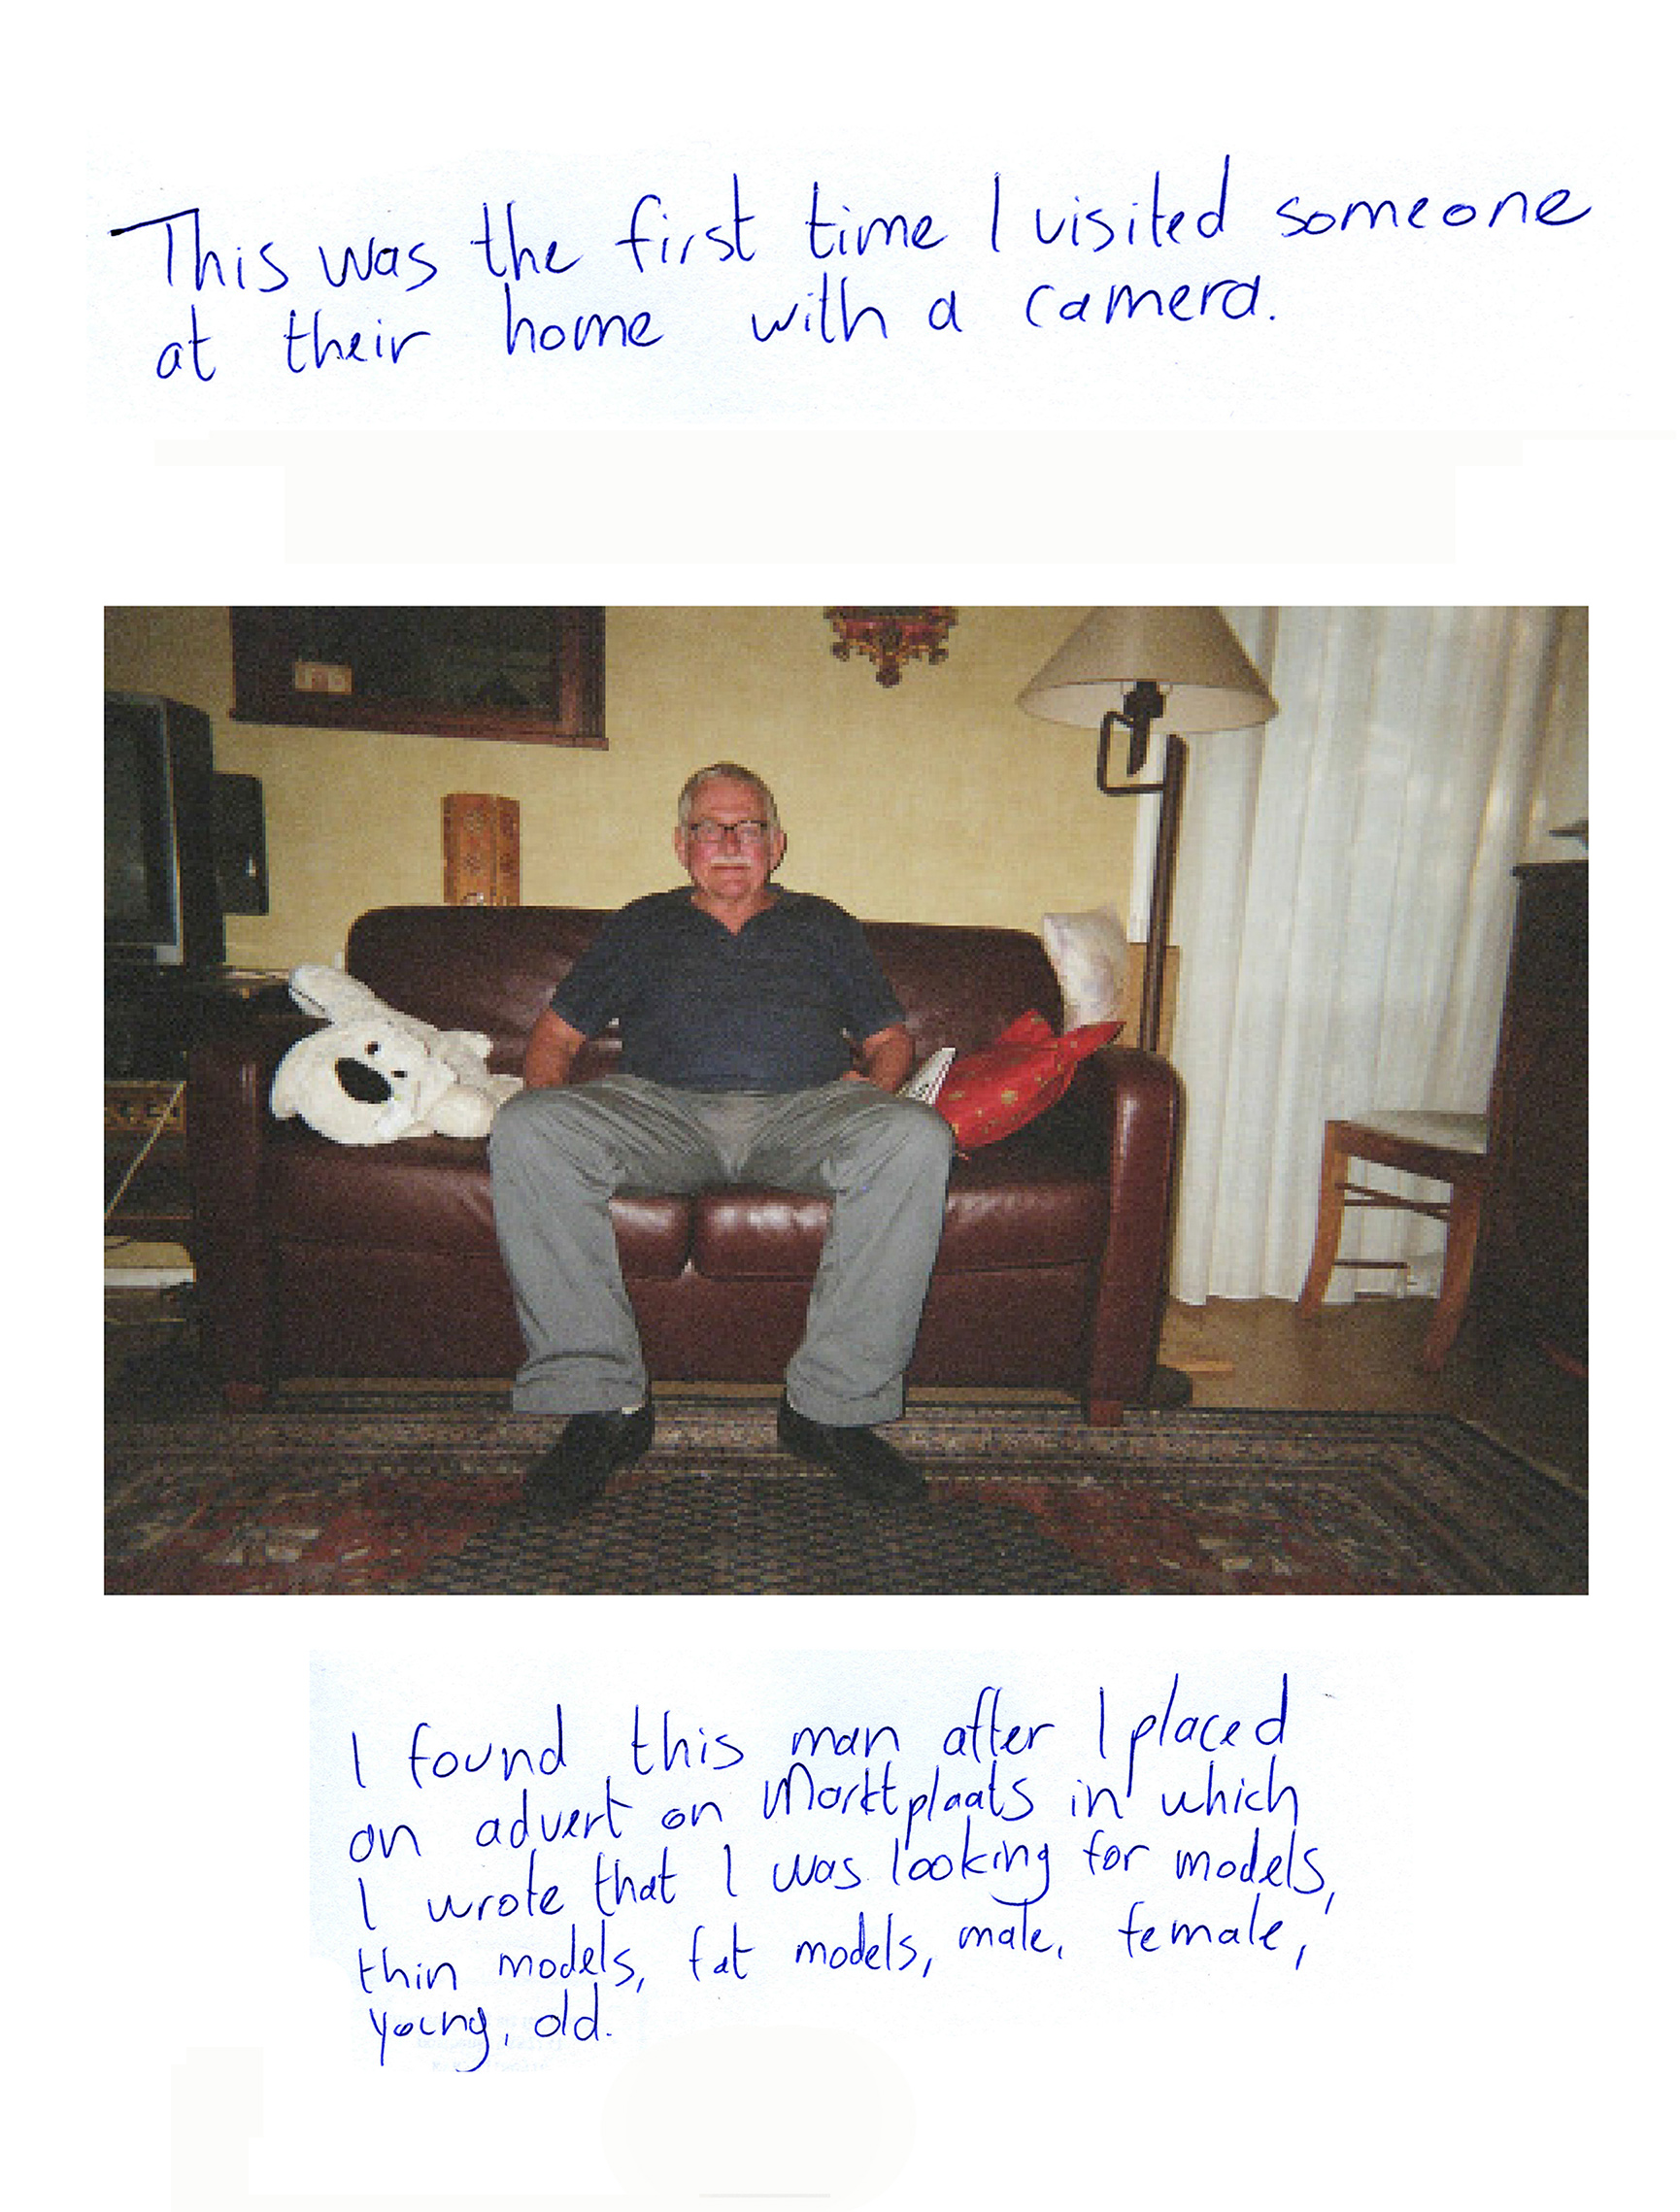 This was the first time I visited someone
at their home with a camera.
I found this man after I placed
an advert on Marktplaats in which
I wrote that I was looking for models,
thin models, fat models, male, female,
young, old.